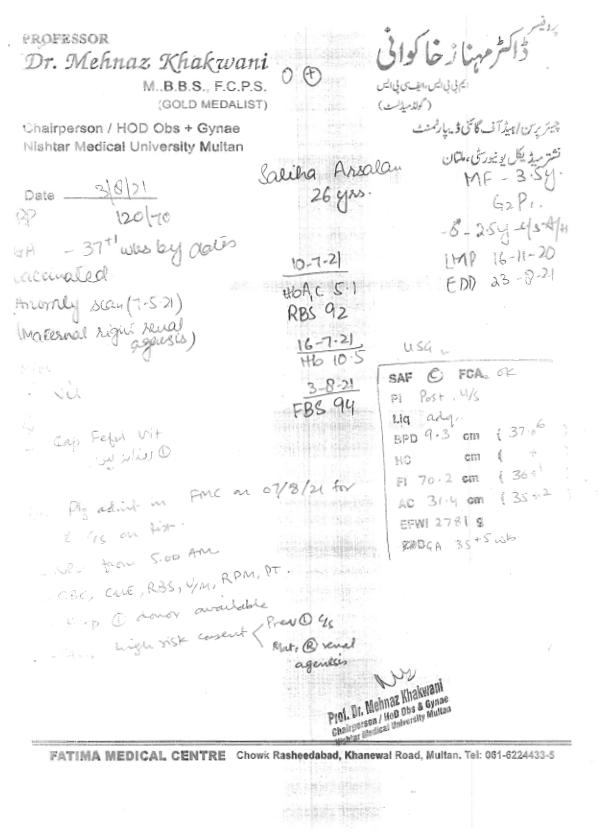 PROFESSOR
Dr. Mehnaz Khakwani
M..B.B.S., F.C.P.S.
(GOLD MEDALIST)
Chairperson / HOD Obs + Gynae
Nishtar Medical University Multan
O +
پروفیسر
ڈاکٹر مہناز خاکوانی
ایم بی بی ایس، ایف سی پی ایس
(گولڈ میڈلسٹ)
چیئرپرسن/ہیڈ آف گائنی ڈیپارٹمنٹ
نشتر میڈیکل یونیورسٹی، ملتان
Saliha Arsalan
26 yrs.
MF - 3.5y.
G2P1.
LMP 16-11-20
EDD 23-8-21
Date 3/8/21
BP 120/70
GA - 37+1 wks by dates
vaccinated
Anomly scan (7-5-21)
(Maternal right renal
agenesis)
Nil
10-7-21
HbA1C 5.1
RBS 92
16-7-21
Hb 10.5
3-8-21
FBS 94
USG
SAF C FCA OK
Pl Post. U/S
Liq adq.
BPD 9.3 cm
HC cm
Fl 70.2 cm
AC 31.4 cm
EFWt 2781 g
GA 35+5 wks
Cap Feful Vit
Plz admit in FMC on 07/8/21 for
c/s on list.
NPO from 5.00 AM
CBC, CUE, RBS, RPM, PT.
1 donor available
high risk consent
Prev 1 c/s
Mat. R renal
agenesis
Prof. Dr. Mehnaz Khakwani
Chairperson / HoD Obs & Gynae
Nishtar Medical University Multan
FATIMA MEDICAL CENTRE Chowk Rasheedabad, Khanewal Road, Multan. Tel: 061-6224433-5